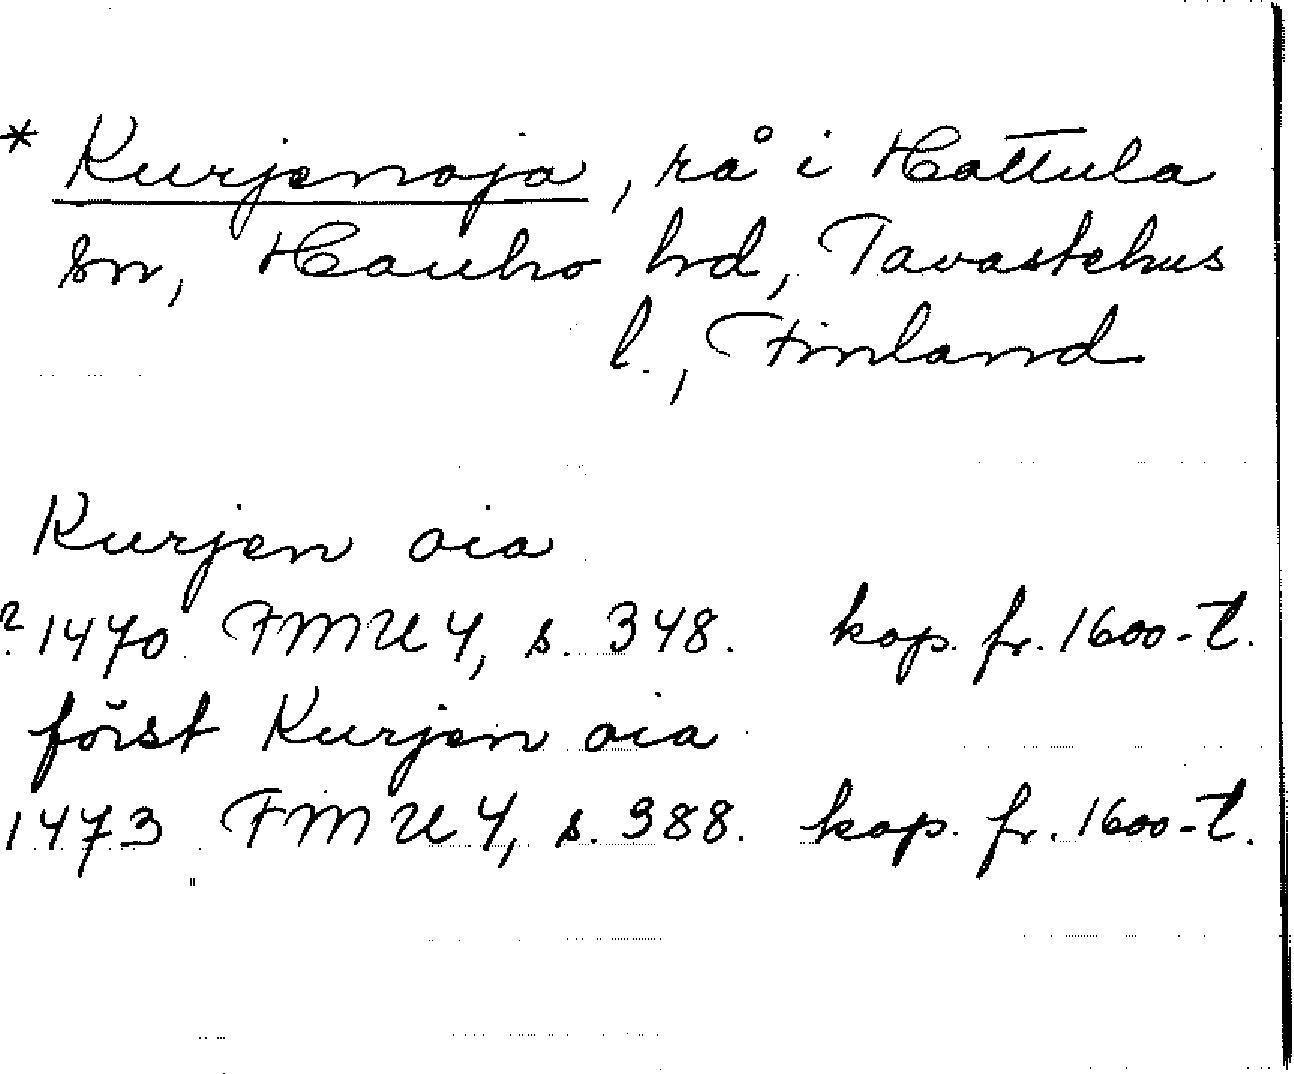 * Kurjenoja, rå i Hattula
sn, Hauho hd, Tavastehus
l., Finland
Kurjen oia
?1470 FMU 4, s. 348. kop. fr. 1600-t.
först Kurjen oia
1473 FMU 4, s. 388. kop. fr. 1600-t.